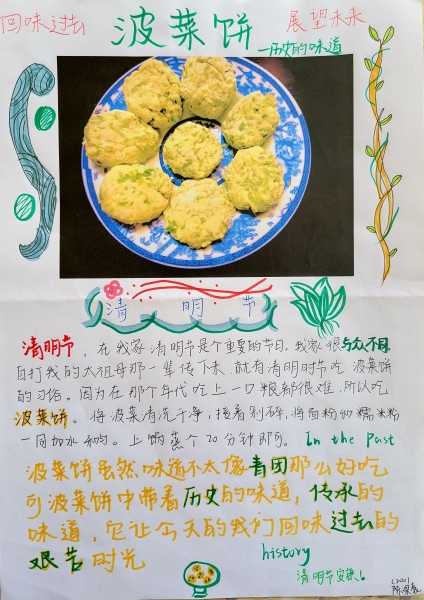 回味过去
波菜饼
展望未来
—历史的味道
清 明 节
清明节，在我家清明节是个重要的节日。我家很与众不同
自打我的太祖母那一辈传下来，就有清明时节吃 波菜饼
的习俗。因为在那个年代吃上一口粮都很难，所以吃
波菜饼。将波菜清洗干净，接着剁碎，将面粉和糯米粉
一同加水和匀。上锅蒸个20分钟即可。In the Past
波菜饼虽然味道不太像青团那么好吃
可波菜饼中带着历史的味道，传承的
味道，它让今天的我们回味过去的
艰苦时光
history
清明节安康！